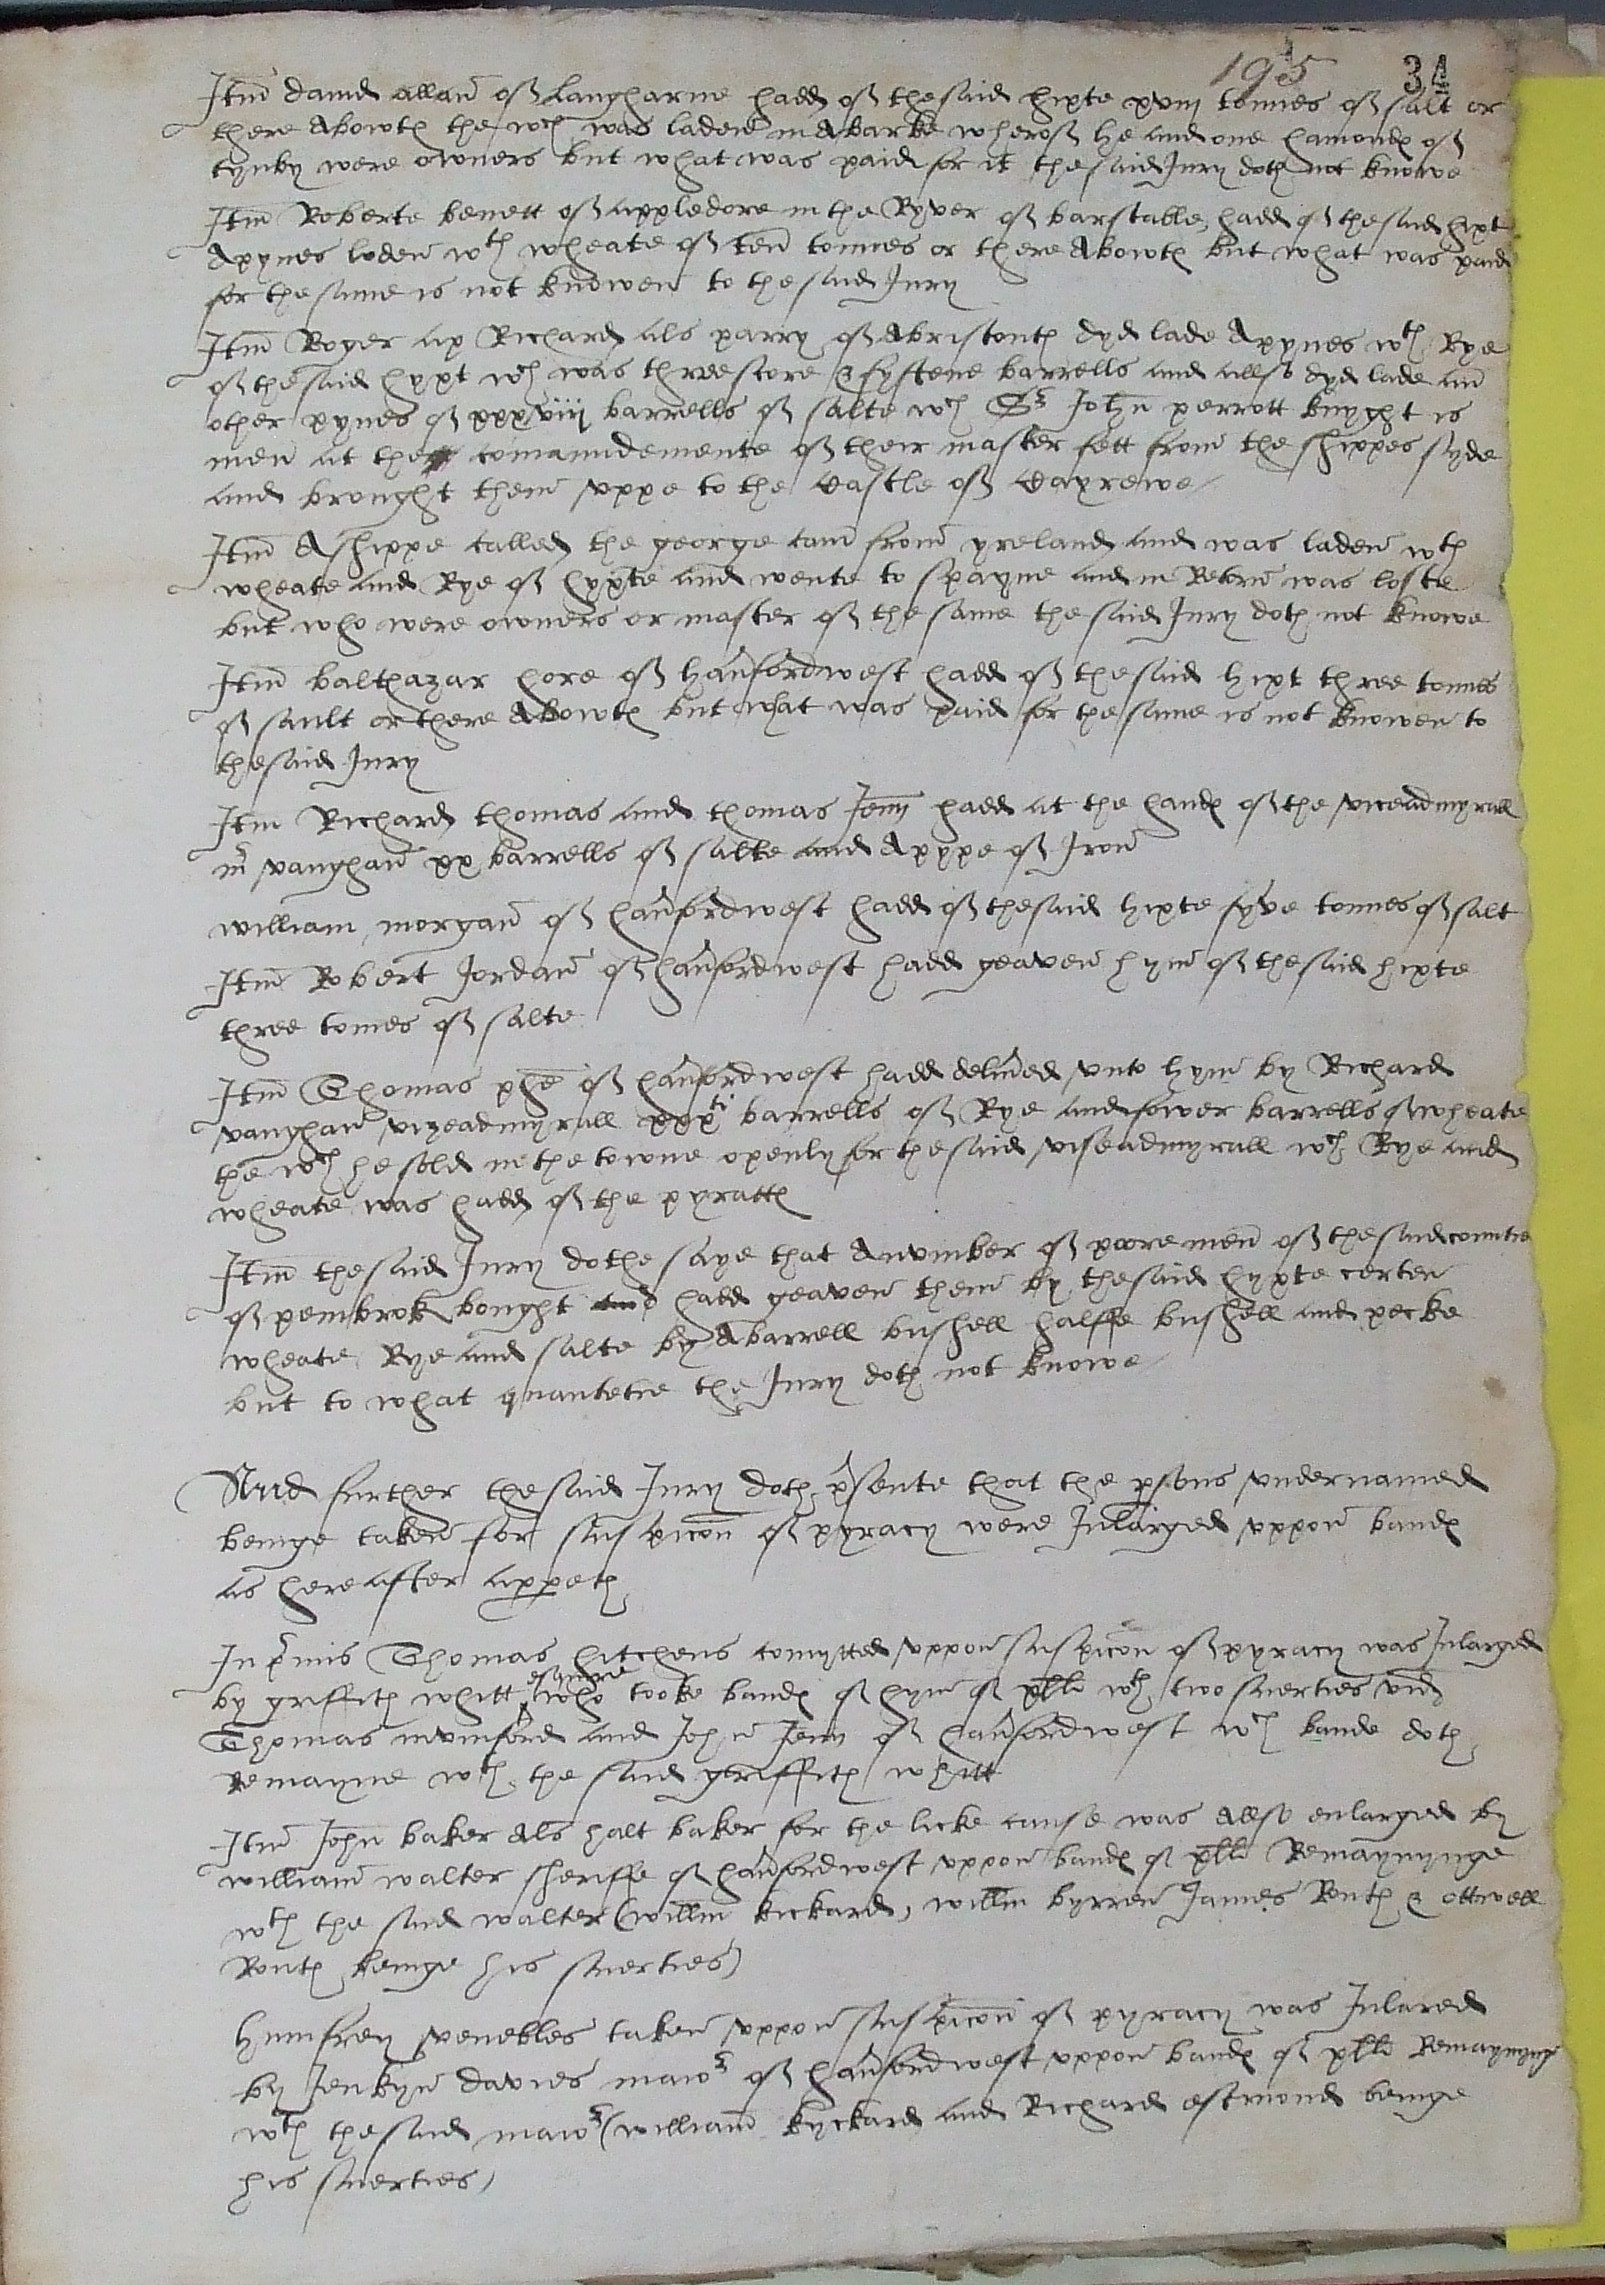 195 34
Itm david allan of Langharne hadd of the said hixte xviij tonnes of salt or
there Abowte the wch was laden in A barke wherof he and one hamonde of
tynby were owners but what was paid for it the said Jury doth not knowe
Itm Roberte benett of appledore in the Ryver of barstable hadd of the said hixt
A pynes loden wth wheate of ten tonnes or there Abowte but what was paid
for the same is not knowen to the said Jury
Itm Roger ap Richard als parry of Abristowe dyd lade A pynes wth Rye
of the said hyxt wch was threescore & fystene barrells and allso dyd lade an
other pynes of xxxviij barrells of salte wch Sr John perrott knyght is
men at the comaundemente of their master fett from the shippes syde
and brought them uppe to the Castle of Carewe
Itm A shippe called the george cam from yreland and was laden wth
wheate and Rye of hyxte and wente to spayne and in Retorn was loste
but who were owners or master of the same the said Jury doth not knowe
Itm balthazar hore of hanfordwest hadd of the said hixt three tonnes
of sault or there Abowte but what was paid for the same is not knowen to
the said Jury
Itm Richard thomas and thomas Jenn hadd at the hande of the viceadmyrall
mr vaughan xx barrells of salte and A pype of Iron
william morgan of hanfordwest hadd of the said hixte fyve tonnes of salt
Itm Robert Jordan of hanfordwest hadd geaven hym of the said hixte
three tonnes of salte
Itm Thomas phe of hanfordwest hadd delived unto hym by Richard
vaughan vizeadmyrall xxxti barrells of Rye and fower barrells of wheate
the wch he sold in the towne openly for the said viseadmyrall wch Rye and
wheate was hadd of the pyratte
Itm the said Jury dothe saye that A number of poore men of the said countie
of pembrok bought and hadd geaven them by the said hyxte certen
wheate Rye and salte by A barrell bushell halffe bushell and pecke
but to what quantetie the Jury doth not knowe
And further the said Jury doth psente that the psons undernamed
beinge taken for suspicon of pyracy were Inlarged uppon bande
as hereafter appeth
In pimis Thomas hitchens comytted uppon suspicon of pyracy was Inlarged
by griffith whitt esquire who tooke bande of hym of xlli wth two suerties vid
Thomas mumford and John Jenn of hanfordwest wch bande doth
remayne wth the said griffith whitt
Itm John baker als halt baker for the licke cause was allso enlarged by
william walter sheriffe of hanfordwest uppon bande of xlli Remaynynge
wth the said walter (willm kickard, willm byrren James Routh & ottwell
Routh beinge his suerties)
Humfrey venebles taken uppon suspicon of pyracy was Inlared
by Jenkyn davies maior of hanfordwest uppon bande of xlli Remaynynge
wth the said maior (william kyckard and Richard estmond beinge
his suerties)